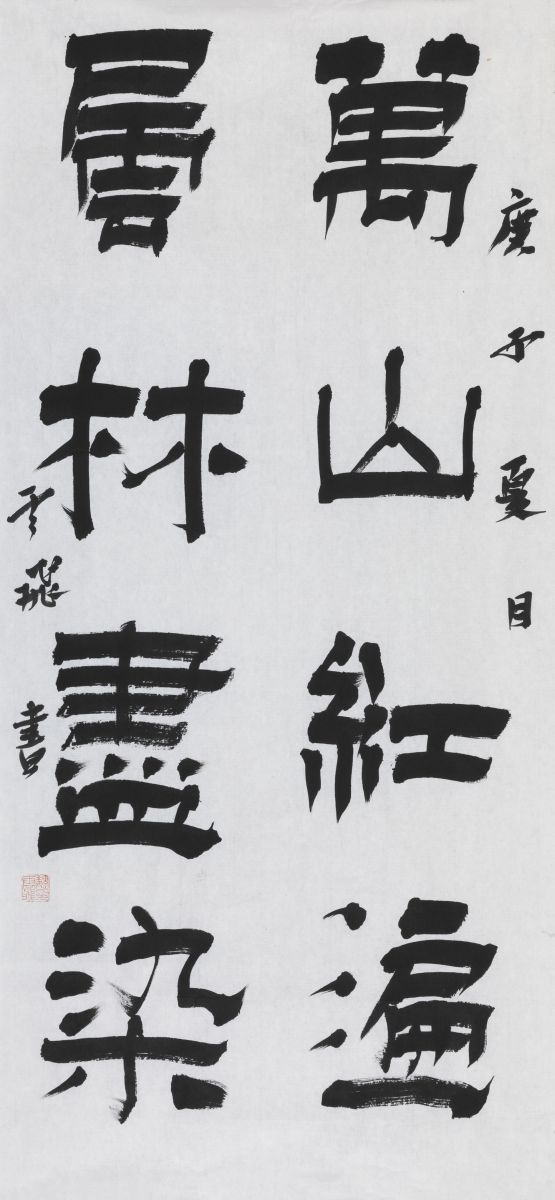 庚子夏月
萬山紅遍
層林盡染
云飛書